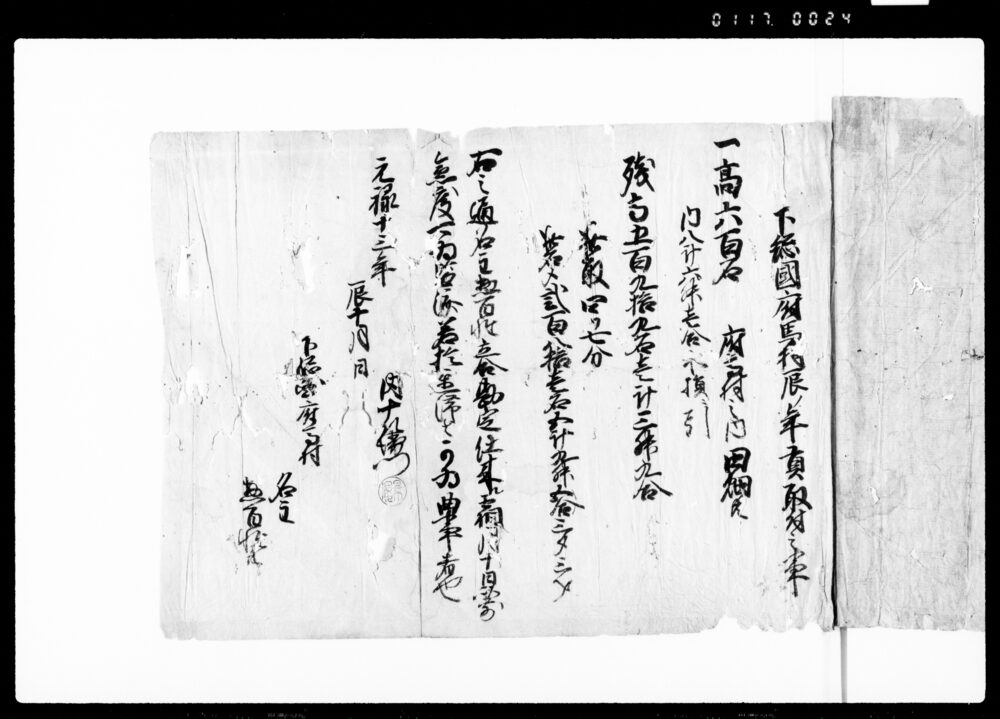 0117. 0024
下総國府馬村辰ノ年貢取付之事
一高六百石 府馬村之内 田畑共
内八斗六升壱合 永損ニ引
残高五百九拾九石壱斗三升九合
此取四ツ七分
此石〆弐百八拾壱石五斗九升五合三夕三才
右之通名主惣百姓立合勘定仕来ル月十日以前
急度可為皆済若於無沙汰ハ可為曲事者也
元禄十三年
辰十月日
内十
下総國府馬村
名主
惣百姓